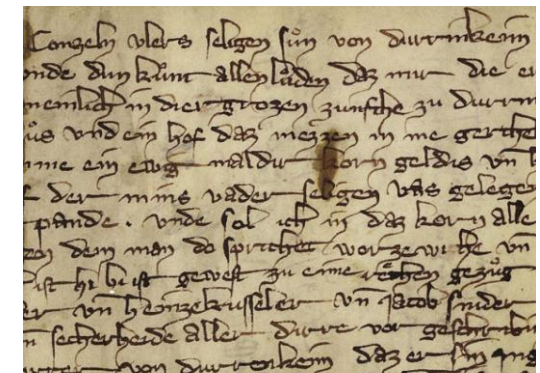 Conzeln vlers seligen sůn von durrinkeim
onde dun kůnt allen lůden daz mir die er
meinlich in dier grozen zunfthe zu durrn
ůs vnd ein hof daz mezzen in me gerthe
me ein ewig maldir korn geldis vn̄
der mins vader seligen vas gelegen
pande . vnde sol ich in daz korn alle
dem man do sprichet worzewihe vn̄
ist hi bi ist gewest zu eime rechen gezůg
er vn̄ heinze krusseler vn̄ jacob sinder
n secherheide aller dirre vor geschribn
von durrenkeim daz er sin